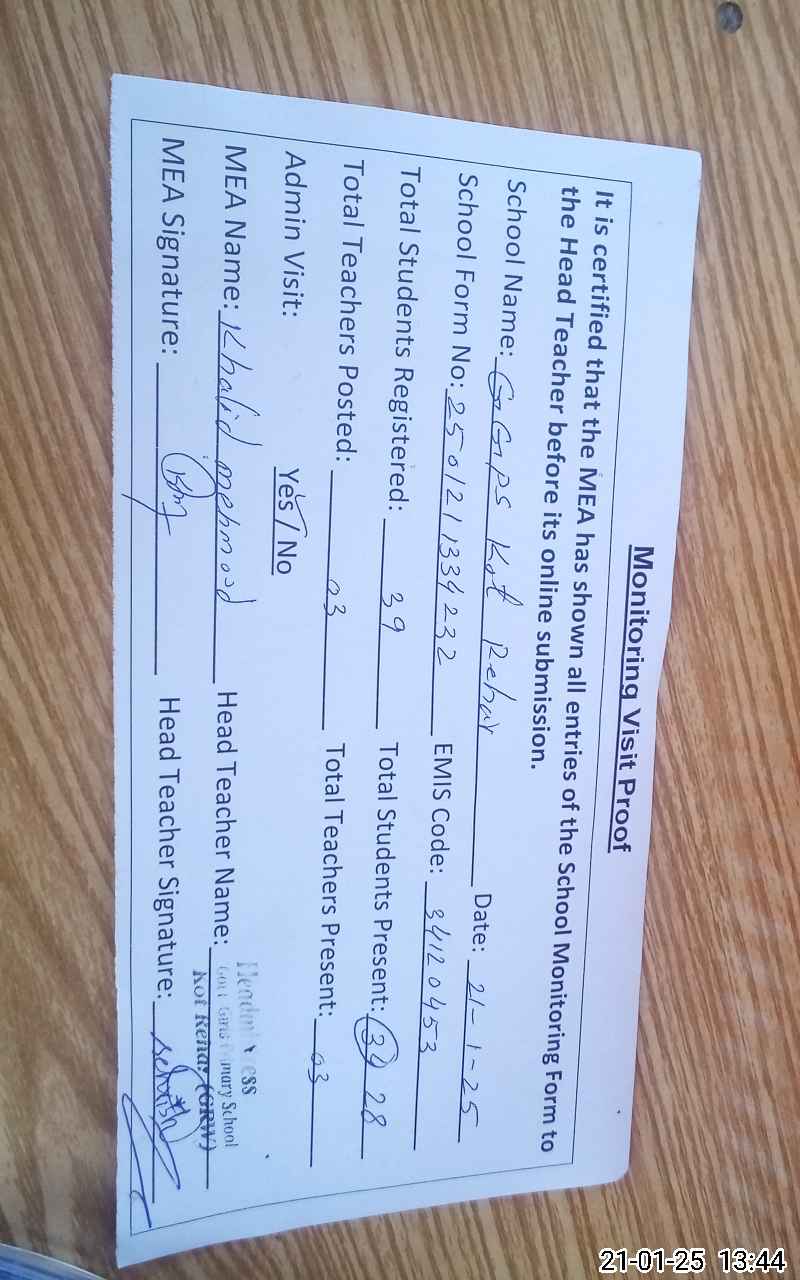 Monitoring Visit Proof
It is certified that the MEA has shown all entries of the School Monitoring Form to
the Head Teacher before its online submission.
School Name: GGPS Kot Rehar Date: 21-1-25
School Form No: 2501211334232 EMIS Code: 34120453
Total Students Registered: 39 Total Students Present: 34 28
Total Teachers Posted: 03 Total Teachers Present: 03
Admin Visit: Yes / No
MEA Name: Khalid mehmood Head Teacher Name:
Govt Girls Primary School
Kot Rehar (GRW)
MEA Signature: Head Teacher Signature:
21-01-25 13:44